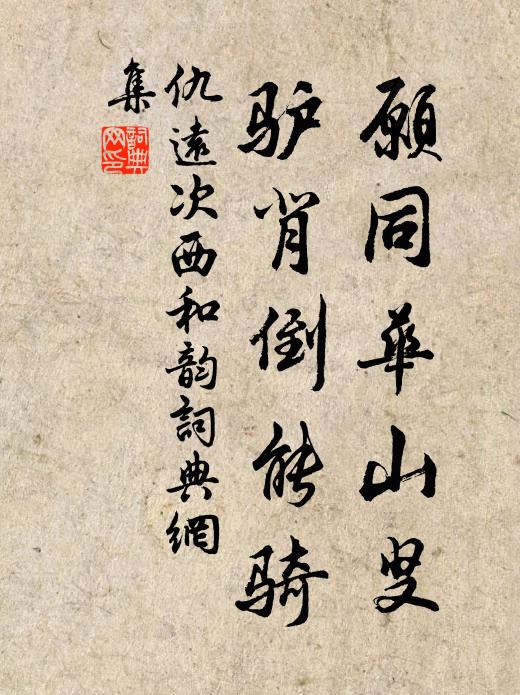 願同華山叟
驴背倒能骑
仇遠次西和韵詞典網
集
詞典网印